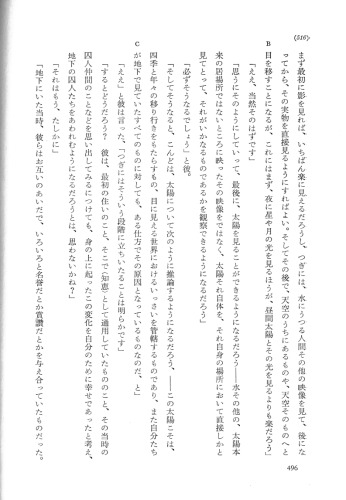 (516)
まず最初に影を見れば、いちばん楽に見えるだろうし、つぎには、水にうつる人間その他の映像を見て、後にな
ってから、その実物を直接見るようにすればよい。そしてその後で、天空のうちにあるものや、天空そのものへと
B 目を移すことになるが、これにはまず、夜に星や月の光を見るほうが、昼間太陽とその光を見るよりも楽だろう」
「ええ、当然そのはずです」
「思うにそのようにしていって、最後に、太陽を見ることができるようになるだろう——水その他の、太陽本
来の居場所ではないところに映ったその映像をではなく、太陽それ自体を、それ自身の場所において直接しかと
見てとって、それがいかなるものであるかを観察できるようになるだろう」
「必ずそうなるでしょう」と彼。
「そしてそうなると、こんどは、太陽について次のように推論するようになるだろう、——この太陽こそは、
四季と年々の移り行きをもたらすもの、目に見える世界におけるいっさいを管轄するものであり、また自分たち
C が地下で見ていたすべてのものに対しても、ある仕方でその原因となっているものなのだ、と」
「ええ」と彼は言った、「つぎにはそういう段階に立ちいたることは明らかです」
「するとどうだろう？ 彼は、最初の住いのこと、そこで〈知恵〉として通用していたもののこと、その当時の
囚人仲間のことなどを思い出してみるにつけても、身の上に起ったこの変化を自分のために幸せであったと考え、
地下の囚人たちをあわれむようになるだろうとは、思わないかね？」
「それはもう、たしかに」
「地下にいた当時、彼らはお互いのあいだで、いろいろと名誉だとか賞讃だとかを与え合っていたものだった。
496